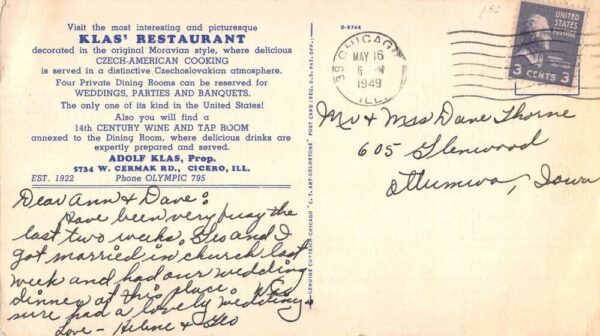 Visit the most interesting and picturesque
KLAS' RESTAURANT
decorated in the original Moravian style, where delicious
CZECH-AMERICAN COOKING
is served in a distinctive Czechoslovakian atmosphere.
Four Private Dining Rooms can be reserved for
WEDDINGS, PARTIES AND BANQUETS.
The only one of its kind in the United States!
Also you will find a
14th CENTURY WINE AND TAP ROOM
annexed to the Dining Room, where delicious drinks are
expertly prepared and served.
ADOLF KLAS, Prop.
5734 W. CERMAK RD., CICERO, ILL.
EST. 1922 Phone OLYMPIC 795
Dear Ann & Dave:
Have been very busy the
last two weeks. Geo and I
got married in church last
week and had our wedding
dinner at this place. We
sure had a lovely wedding.
Love - Helene & Geo
D-8744
POST CARD (REG. U.S. PAT. OFF.)
GENUINE CURTEICH-CHICAGO "C. T. ART-COLORTONE"
CHICAGO
MAY 16
1949
ILL.
UNITED STATES
POSTAGE
3 CENTS 3
Mr & Mrs Dave Thorne
605 Glenwood
Ottumwa, Iowa